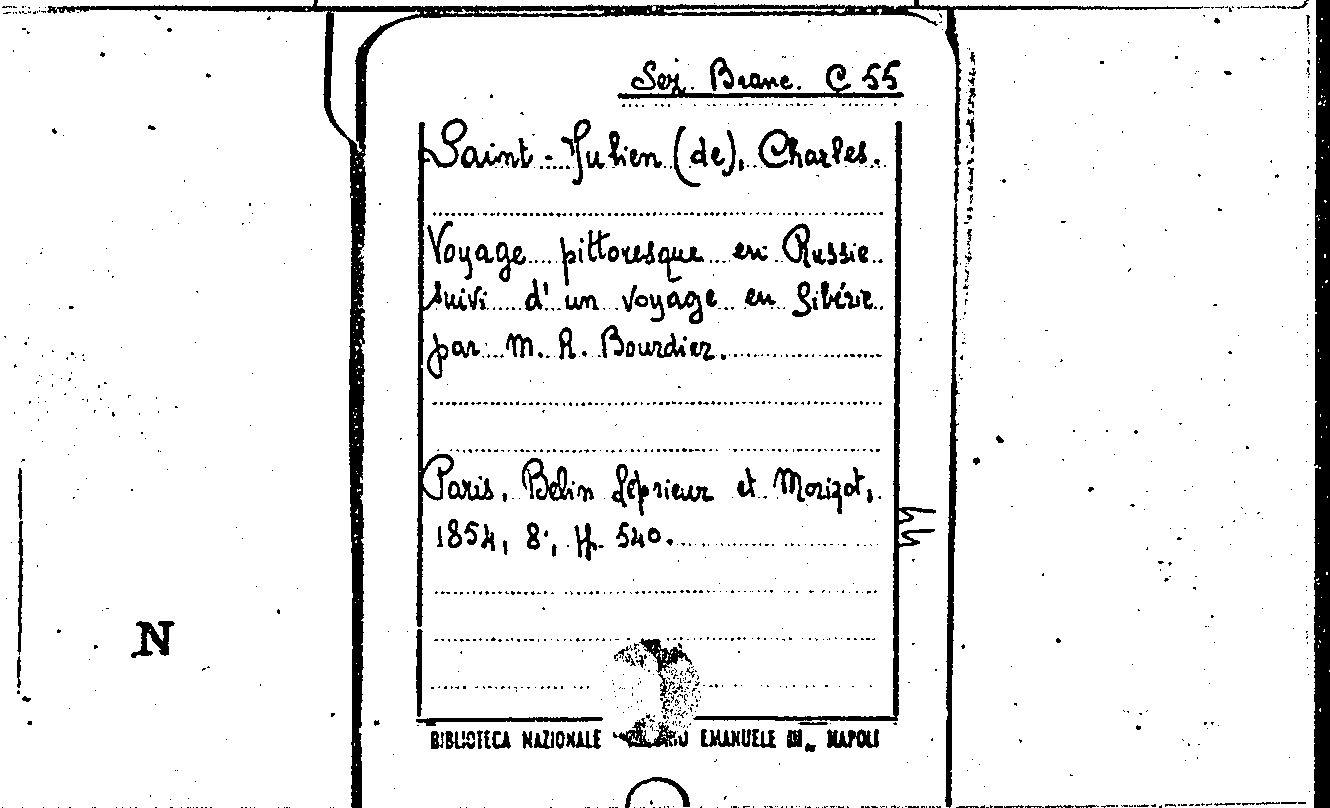 Sez. Branc. C 55
Saint-Julien (de), Charles.
Voyage pittoresque en Russie
suivi d'un voyage en Sibérie
par M. R. Bourdier.
Paris, Belin Léprieur et Morizot,
1854, 8°, pp. 540.
N
BIBLIOTECA NAZIONALE EMANUELE III - NAPOLI